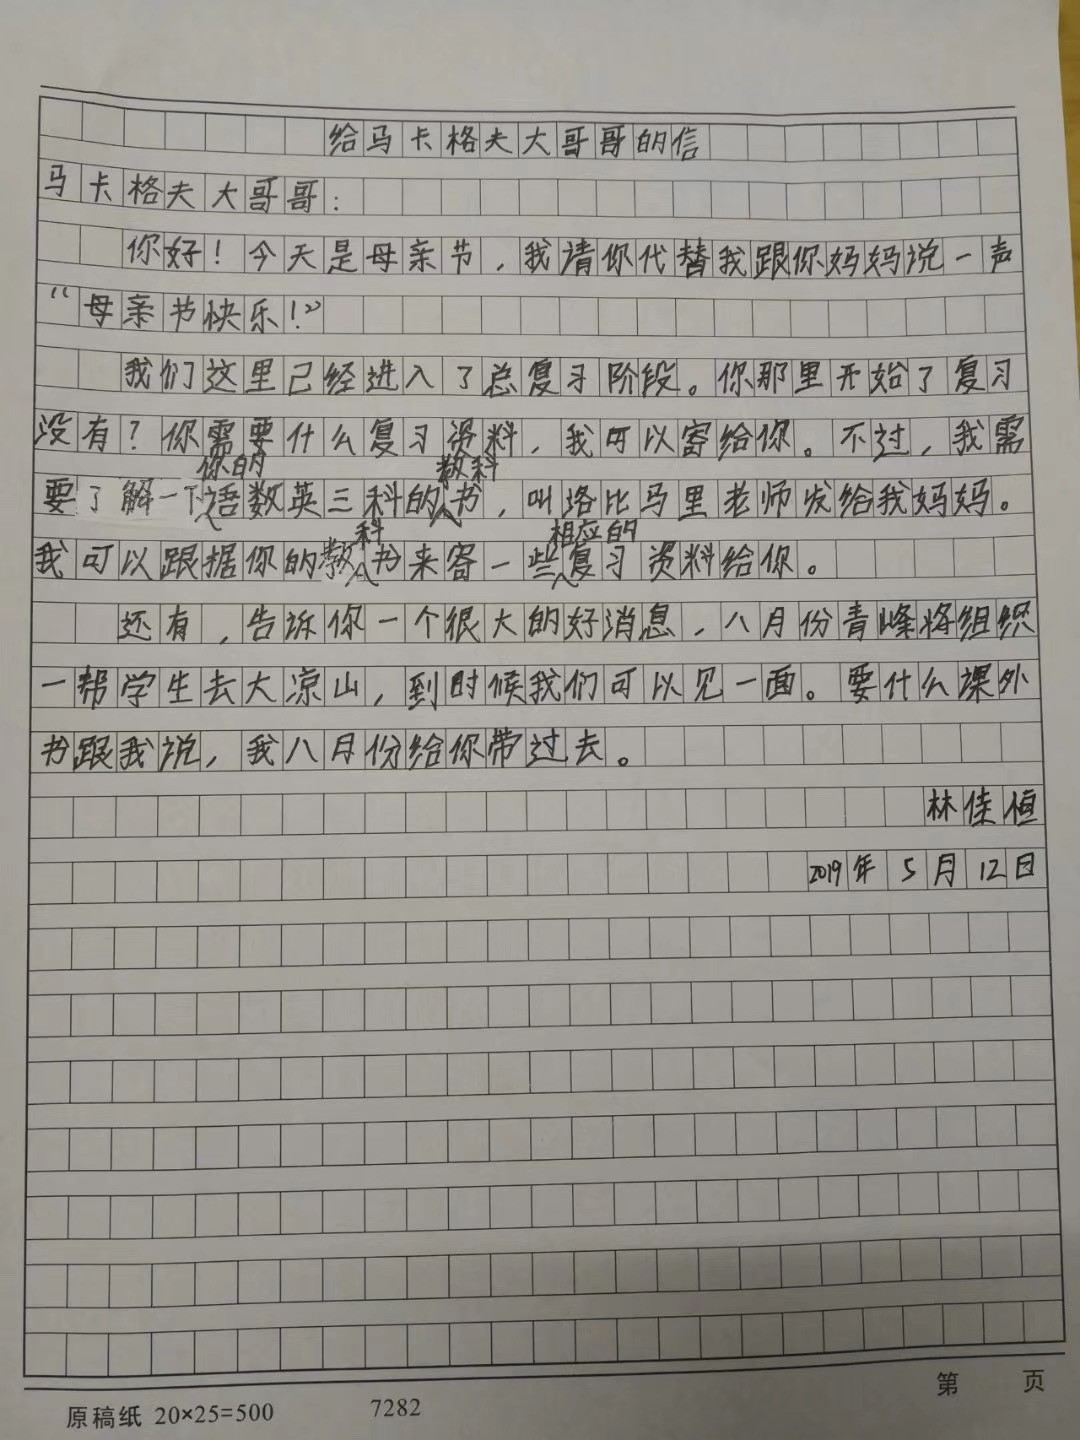 给马卡格夫大哥哥的信
马卡格夫大哥哥：
你好！今天是母亲节，我请你代替我跟你妈妈说一声
“母亲节快乐！”
我们这里已经进入了总复习阶段。你那里开始了复习
没有？你需要什么复习资料，我可以寄给你。不过，我需
你的 教科
要了解一下语数英三科的书，叫洛比马里老师发给我妈妈。
科 相应的
我可以跟据你的教书来寄一些复习资料给你。
还有，告诉你一个很大的好消息，八月份青峰将组织
一帮学生去大凉山，到时候我们可以见一面。要什么课外
书跟我说，我八月份给你带过去。
林佳恒
2019年5月12日
第 页
原稿纸 20×25=500 7282